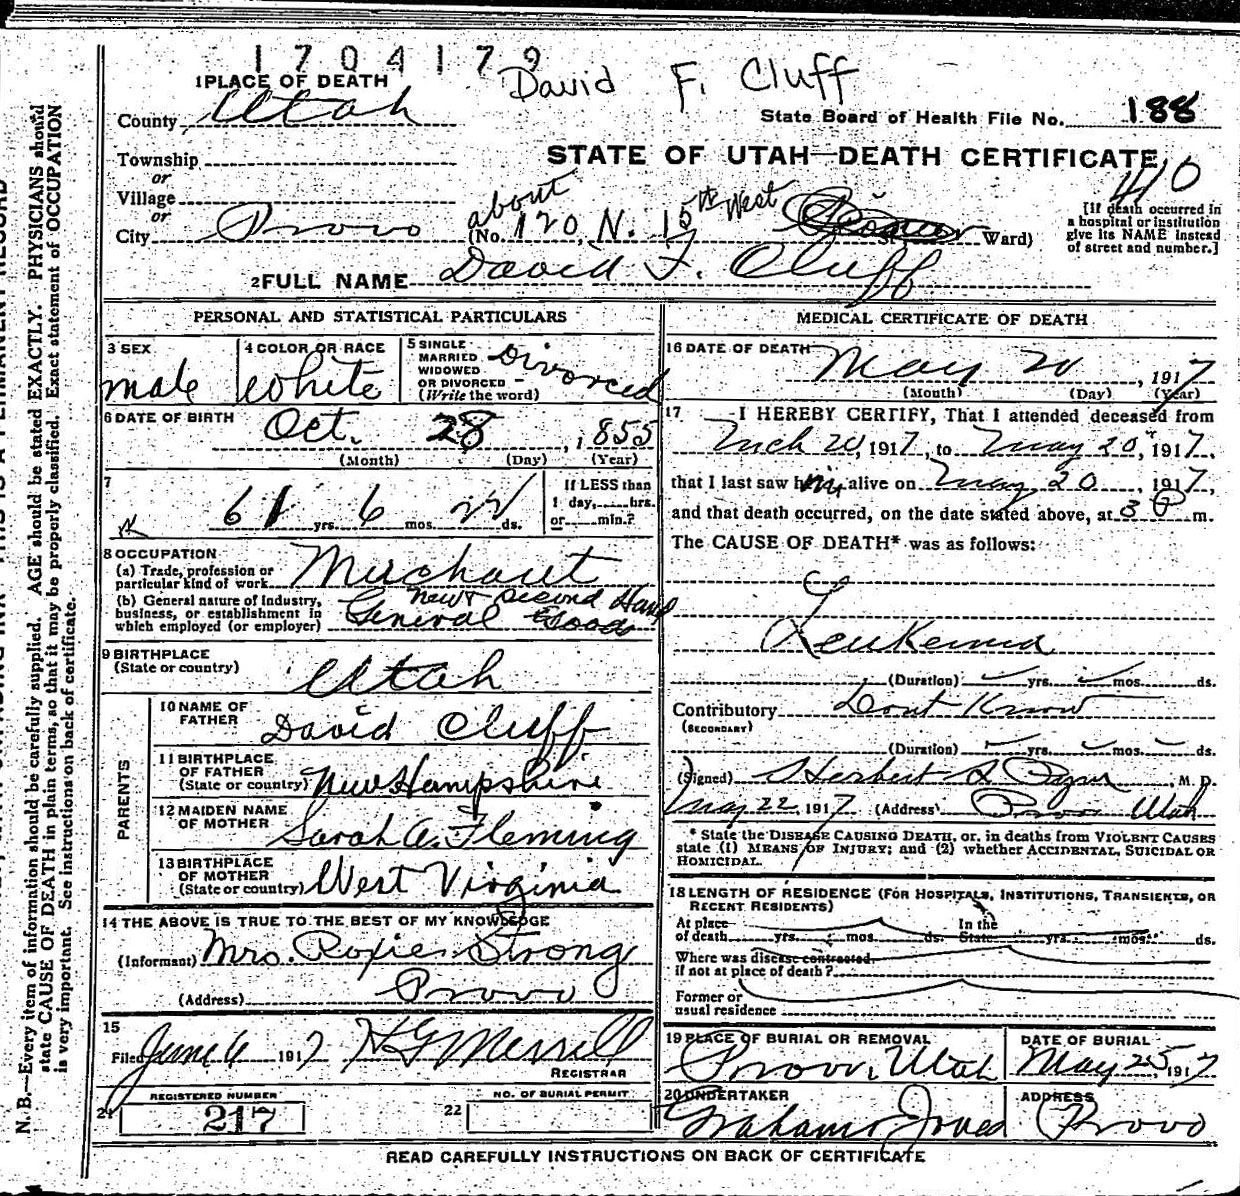 1704179
David F. Cluff
1 PLACE OF DEATH
County Utah
State Board of Health File No. 188
Township
or
STATE OF UTAH—DEATH CERTIFICATE
Village
or
City Provo (No. about 120 N. 15th West St Ward)
[If death occurred in
a hospital or institution
give its NAME instead
of street and number.]
2 FULL NAME David F. Cluff
PERSONAL AND STATISTICAL PARTICULARS
3 SEX
male
4 COLOR OR RACE
White
5 SINGLE
MARRIED
WIDOWED
OR DIVORCED
(Write the word)
Divorced
6 DATE OF BIRTH
Oct. 28, 1855
(Month) (Day) (Year)
7
61 yrs. 6 mos. 22 ds.
If LESS than
1 day,......hrs.
or......min.?
8 OCCUPATION
(a) Trade, profession or
particular kind of work Merchant
(b) General nature of Industry,
business, or establishment in
which employed (or employer)
New & Second Hand
General Goods
9 BIRTHPLACE
(State or country) Utah
PARENTS
10 NAME OF
FATHER David Cluff
11 BIRTHPLACE
OF FATHER
(State or country) New Hampshire
12 MAIDEN NAME
OF MOTHER Sarah A. Fleming
13 BIRTHPLACE
OF MOTHER
(State or country) West Virginia
14 THE ABOVE IS TRUE TO THE BEST OF MY KNOWLEDGE
(Informant) Mrs. Roxie Strong
(Address) Provo
15
Filed June 6 1917 H G Merrill
REGISTRAR
21 REGISTERED NUMBER
217
22 NO. OF BURIAL PERMIT
MEDICAL CERTIFICATE OF DEATH
16 DATE OF DEATH
May 20, 1917
(Month) (Day) (Year)
17 I HEREBY CERTIFY, That I attended deceased from
Mch 20, 1917, to May 20, 1917,
that I last saw him alive on May 20, 1917,
and that death occurred, on the date stated above, at 3 P m.
The CAUSE OF DEATH* was as follows:
Leukemia
(Duration) yrs. mos. ds.
Contributory Dont Know
(SECONDARY)
(Duration) yrs. mos. ds.
(Signed) Herbert S Pyne, M. D.
May 22 1917 (Address) Provo Utah
* State the DISEASE CAUSING DEATH, or, in deaths from VIOLENT CAUSES
state (1) MEANS OF INJURY; and (2) whether ACCIDENTAL, SUICIDAL OR
HOMICIDAL.
18 LENGTH OF RESIDENCE (FOR HOSPITALS, INSTITUTIONS, TRANSIENTS, OR
RECENT RESIDENTS)
At place In the
of death yrs. mos. ds. State yrs. mos. ds.
Where was disease contracted,
if not at place of death?
Former or
usual residence
19 PLACE OF BURIAL OR REMOVAL
Provo, Utah
DATE OF BURIAL
May 25, 1917
20 UNDERTAKER
Graham & Jones
ADDRESS
Provo
READ CAREFULLY INSTRUCTIONS ON BACK OF CERTIFICATE
N. B.—Every item of information should be carefully supplied. AGE should be stated EXACTLY. PHYSICIANS should
state CAUSE OF DEATH in plain terms, so that it may be properly classified. Exact statement of OCCUPATION
is very important. See instructions on back of certificate.